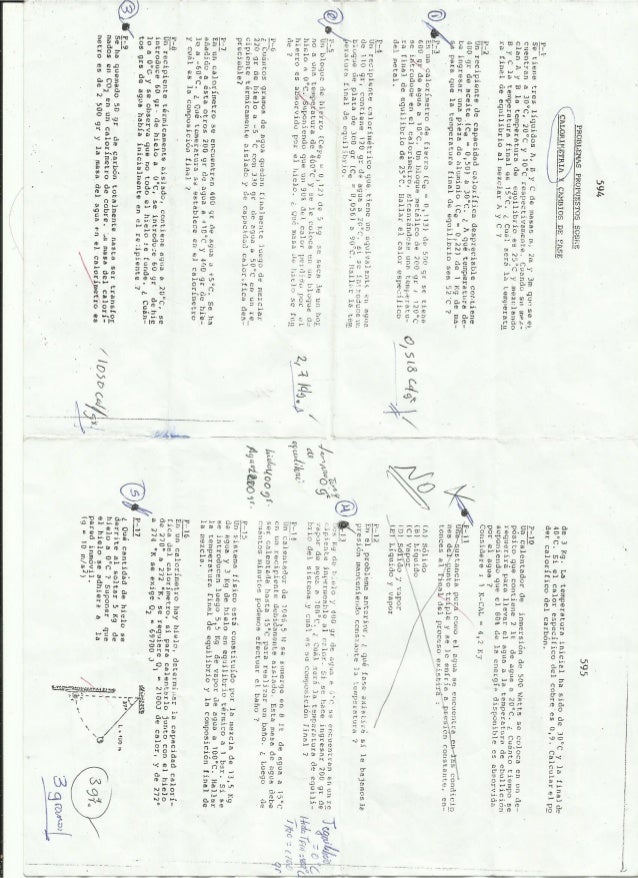 594
PROBLEMAS PROPUESTOS SOBRE
CALORIMETRIA Y CAMBIOS DE FASE
P-1
Se tienen tres líquidos A, B y C de masas m, 2m y 3m que se en
cuentran a 30°C, 20°C y 10°C respectivamente. Cuando se mez-
clan A y B la temperatura de equilibrio es 25°C y mezclando
B y C la temperatura final es
ra final de equilibrio al mezclar A y C ?
P-2
Un recipiente de capacidad calorífica despreciable contiene
400 gr de aceite (Ce = 0,50) a 30°C. ¿ A qué temperatura de-
be ingresar una pieza de aluminio (Ce = 0,22) de 1 Kg de ma-
sa para que la temperatura final de equilibrio sea 52°C ?
P-3
En un calorímetro de fierro (Ce = 0,113) de 500 gr se tiene
600 gr de agua a 18°C. Un bloque metálico de 200 gr a 120°C
se introduce en el calorímetro, alcanzándose una temperatu-
ra final de equilibrio de 25°C. Hallar el calor específico
del metal.
0,518 cal/g
P-4
Un recipiente calorimétrico que tiene un equivalente en agua
de 110 gr contiene 120 gr de agua a 10°C. Si se introduce un
bloque de plata de 300 gr (Ce = 0,056) a 90°C. Hallar la tem
peratura final de equilibrio.
P-5
Un bloque de hierro
de 5 Kg se saca de un hor
no a una temperatura de 400°C y se le coloca en un bloque de
hielo a 0°C. Suponiendo que un 90% del calor perdido por el
hierro es absorvido por el hielo. ¿ Qué masa de hielo se fun
de ?
2,7 Kg
P-6
¿ Cuántos gramos de agua quedan finalmente luego de mezclar
220 gr de hielo a -5°C con 330 gr de agua a 30°C en un re-
cipiente térmicamente aislado y de capacidad calorífica des-
preciable.
P-7
En un calorímetro se encuentran 400 gr de agua a +5°C. Se ha
añadido a ésta otros 200 gr de agua a +10°C y 400 gr de hie-
lo a -60°C. ¿ Qué temperatura se establece en el calorímetro
y cuál es la composición final ?
P-8
Un recipiente térmicamente aislado, contiene agua a 20°C, se
introduce 60 gr de hielo a 0°C, se introduce 60 gr de hie
lo a 0°C y se observa que no todo el hielo se funde. ¿ Cuán-
tos grs de agua había inicialmente en el recipiente ?
P-9
Se ha quemado 50 gr de carbón totalmente hasta ser transfor
mados en CO₂ en un calorímetro de cobre. La masa del calorí-
metro es de 2 500 gr y la masa del agua en el calorímetro es
1050 cal/gr
595
de 3 Kg. La temperatura inicial ha sido de 30°C y la final de
40°C. Si el calor específico del cobre es 0,9. Calcular el po
der calorífico del carbón.
P-10
Un calentador de inmersión de 500 Watts se coloca en un de-
pósito que contiene 2 lt de agua a 20°C. ¿ Cuánto tiempo se
requerirá para llevar el agua a la temperatura de ebullición
suponiendo que el 80% de la energía disponible es absorvida
por el agua ?
Considere 1 K-CAL = 4,2 KJ
P-11
Una sustancia pura como el agua se encuentra en las condicio
nes del punto triple y se le enfría a presión constante, en-
tonces al final del proceso existirá :
(A) Sólido
(B) Líquido
(C) Vapor
(D) Sólido y vapor
(E) Líquido y vapor
NO
P-12
En el problema anterior, ¿ qué fase existirá si le bajamos la
presión manteniendo constante la temperatura ?
P-13
Un Kg de hielo y 400 gr de agua a 0°C se encuentran en un re
cipiente impermeable al calor. Si se hace ingresar 200 gr de
vapor de agua a 100°C, ¿ Cuál será la temperatura de equili-
brio del sistema y cuál es su composición final ?
P-14
Un calentador de 1046,5 W se sumerge en 8 lt de agua a 15°C
en un recipiente debidamente aislado. Esta masa de agua debe
ser calentada hasta 35°C para realizar un baño. ¿ Luego de
cuantos minutos podemos efectuar el baño ?
P-15
Un sistema físico está constituido por la mezcla de 13,5 Kg
de agua y 3 Kg de hielo en equilibrio térmico a 1 bar. Si se
le introducen luego 5,5 Kg de vapor de agua a 100°C. Hallar
la temperatura final de equilibrio y la composición final de
la mezcla.
P-16
En un calorímetro hay hielo, determinar la capacidad calorí-
fica del calorímetro, si para calentarlo junto con el hielo
de 270° a 272 °K, se requiere Q₁ = 2100J de calor, y de 272°
a 274 °K se exige Q₂ = 69700 J
P-17
¿ Qué cantidad de hielo se
derrite al soltar 5 Kg de
hielo a 0°C ? Suponer que
el hielo se adhiere a la
pared inmóvil.
(g = 10 m/s²)
3 gr.
3 gramos